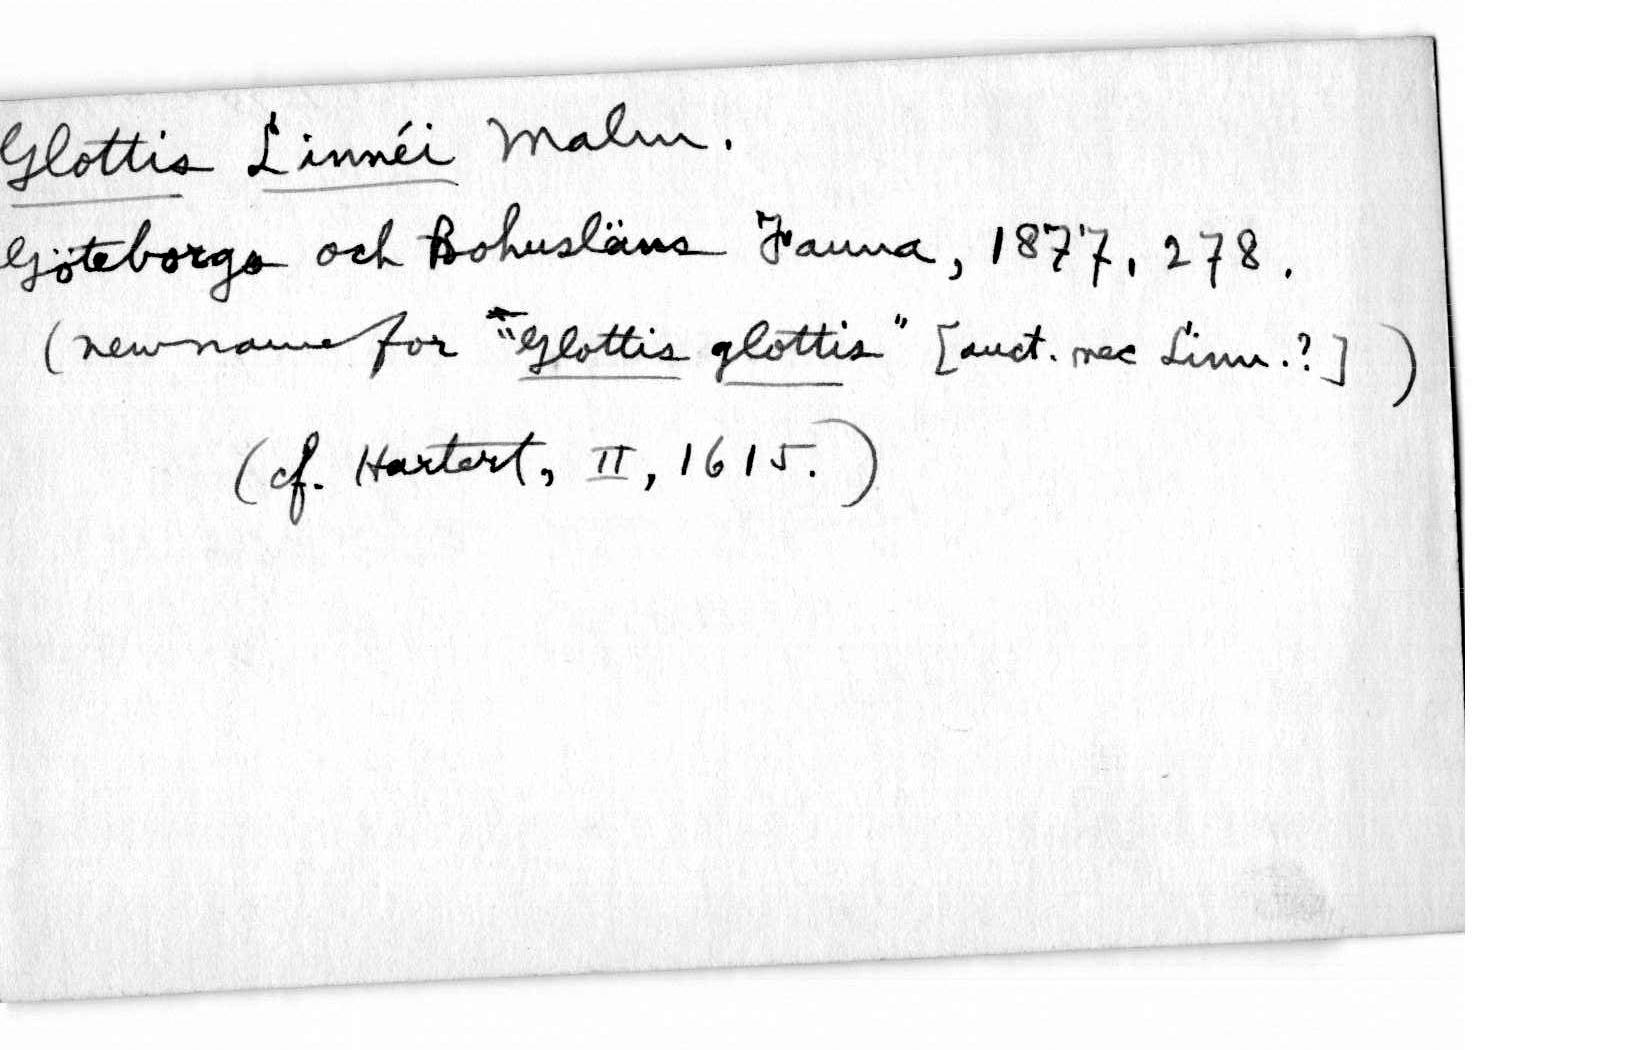 Glottis Linnéi Malm.
Göteborgs och Bohusläns Fauna, 1877, 278.
(new name for "Glottis glottis" [auct. nec Linn.?])
(cf. Hartert, II, 1615.)